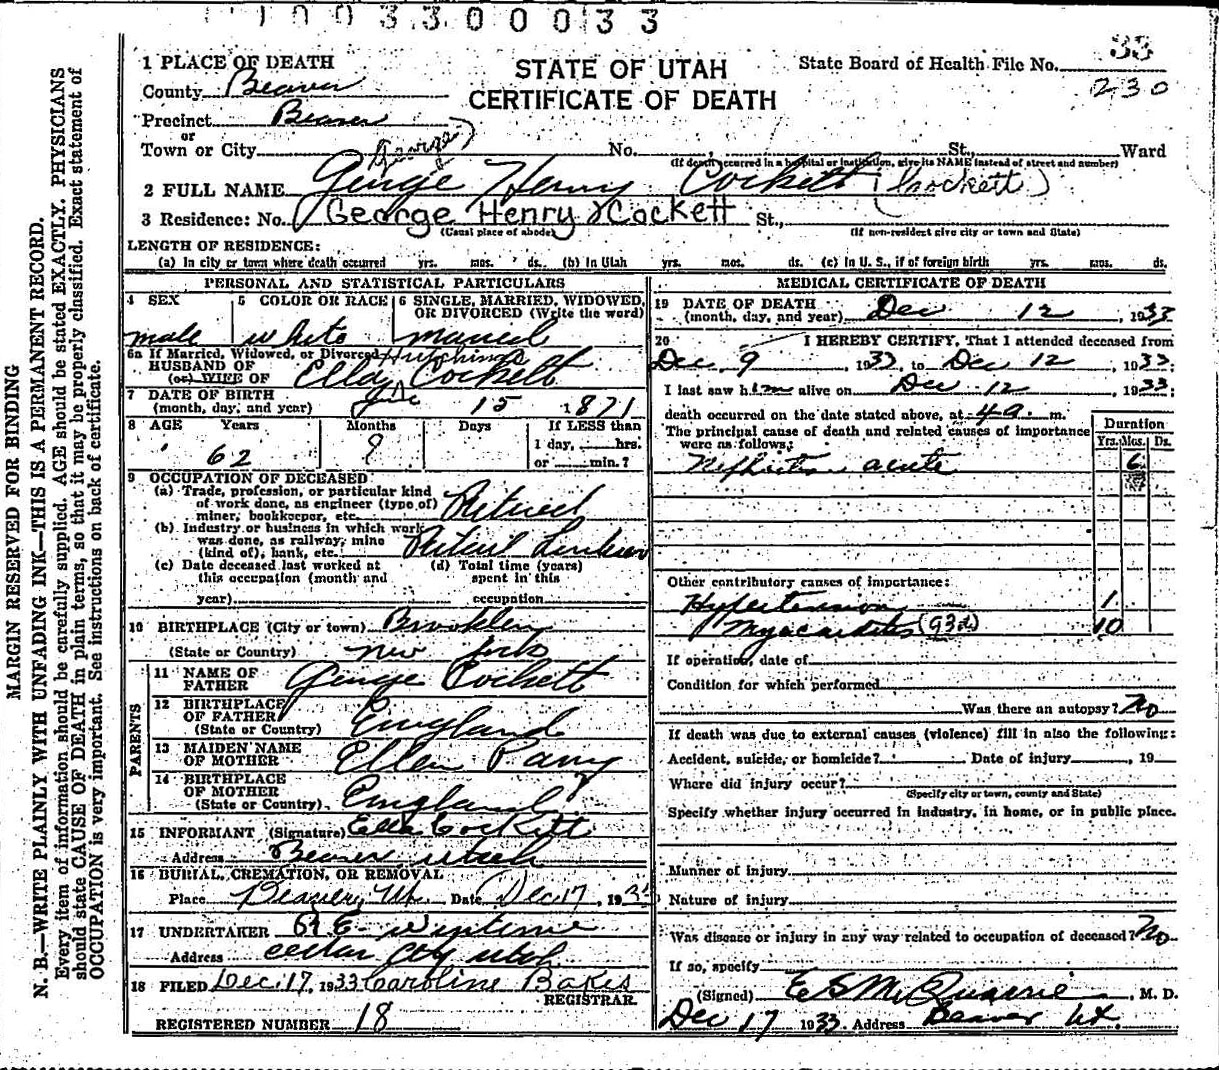 1003300033
33
1 PLACE OF DEATH
STATE OF UTAH
State Board of Health File No.
230
County Beaver
CERTIFICATE OF DEATH
Precinct Beaver
or
Town or City No. St., Ward
(If death occurred in a hospital or institution, give its NAME instead of street and number)
(George)
2 FULL NAME George Henry Cockett (Crockett)
3 Residence: No. George Henry Cockett St.,
(Usual place of abode)
(If non-resident give city or town and State)
LENGTH OF RESIDENCE:
(a) In city or town where death occurred yrs. mos. ds. (b) In Utah yrs. mos. ds. (c) In U. S., if of foreign birth yrs. mos. ds.
PERSONAL AND STATISTICAL PARTICULARS
4 SEX
male
5 COLOR OR RACE
white
6 SINGLE, MARRIED, WIDOWED, OR DIVORCED (Write the word)
married
6a If Married, Widowed, or Divorced
HUSBAND OF
(or) WIFE OF
Hutchings
Ella Cockett
7 DATE OF BIRTH
(month, day, and year) 15 1871
8 AGE Years Months Days If LESS than
62 9 1 day, hrs.
or min.?
9 OCCUPATION OF DECEASED
(a) Trade, profession, or particular kind
of work done, as engineer (type of)
miner, bookkeeper, etc. Retired
(b) Industry or business in which work
was done, as railway, mine
(kind of), bank, etc. Retail
(c) Date deceased last worked at
this occupation (month and
year)
(d) Total time (years)
spent in this
occupation
10 BIRTHPLACE (City or town) Brooklen
(State or Country) New York
PARENTS
11 NAME OF
FATHER George Cockett
12 BIRTHPLACE
OF FATHER
(State or Country) England
13 MAIDEN NAME
OF MOTHER Ellen Parry
14 BIRTHPLACE
OF MOTHER
(State or Country) England
15 INFORMANT (Signature) Ella Cockett
Address Beaver Utah
16 BURIAL, CREMATION, OR REMOVAL
Place Beaver, Ut. Date Dec 17, 193
17 UNDERTAKER
Address Cedar City Utah
18 FILED Dec. 17, 1933 Caroline Bakes
REGISTRAR.
REGISTERED NUMBER 18
MEDICAL CERTIFICATE OF DEATH
19 DATE OF DEATH
(month, day, and year) Dec 12, 1933
20 I HEREBY CERTIFY, That I attended deceased from
Dec 9, 1933, to Dec 12, 1933;
I last saw him alive on Dec 12 1933;
death occurred on the date stated above, at 4 a. m.
The principal cause of death and related causes of importance
were as follows:
Duration
Yrs. Mos. Ds.
Nefhritis acute 6
Other contributory causes of importance:
Hypertension 1
Myocarditis (93d) 10
If operation, date of
Condition for which performed
Was there an autopsy? No
If death was due to external causes (violence) fill in also the following:
Accident, suicide, or homicide? Date of injury, 19
Where did injury occur?
(Specify city or town, county and State)
Specify whether injury occurred in industry, in home, or in public place.
Manner of injury
Nature of injury
Was disease or injury in any way related to occupation of deceased? No
If so, specify
(Signed) E S McQuarrie, M. D.
Dec 17 1933. Address Beaver Ut.
MARGIN RESERVED FOR BINDING
N. B.—WRITE PLAINLY WITH UNFADING INK—THIS IS A PERMANENT RECORD.
Every item of information should be carefully supplied. AGE should be stated EXACTLY. PHYSICIANS
should state CAUSE OF DEATH in plain terms, so that it may be properly classified. Exact statement of
OCCUPATION is very important. See instructions on back of certificate.